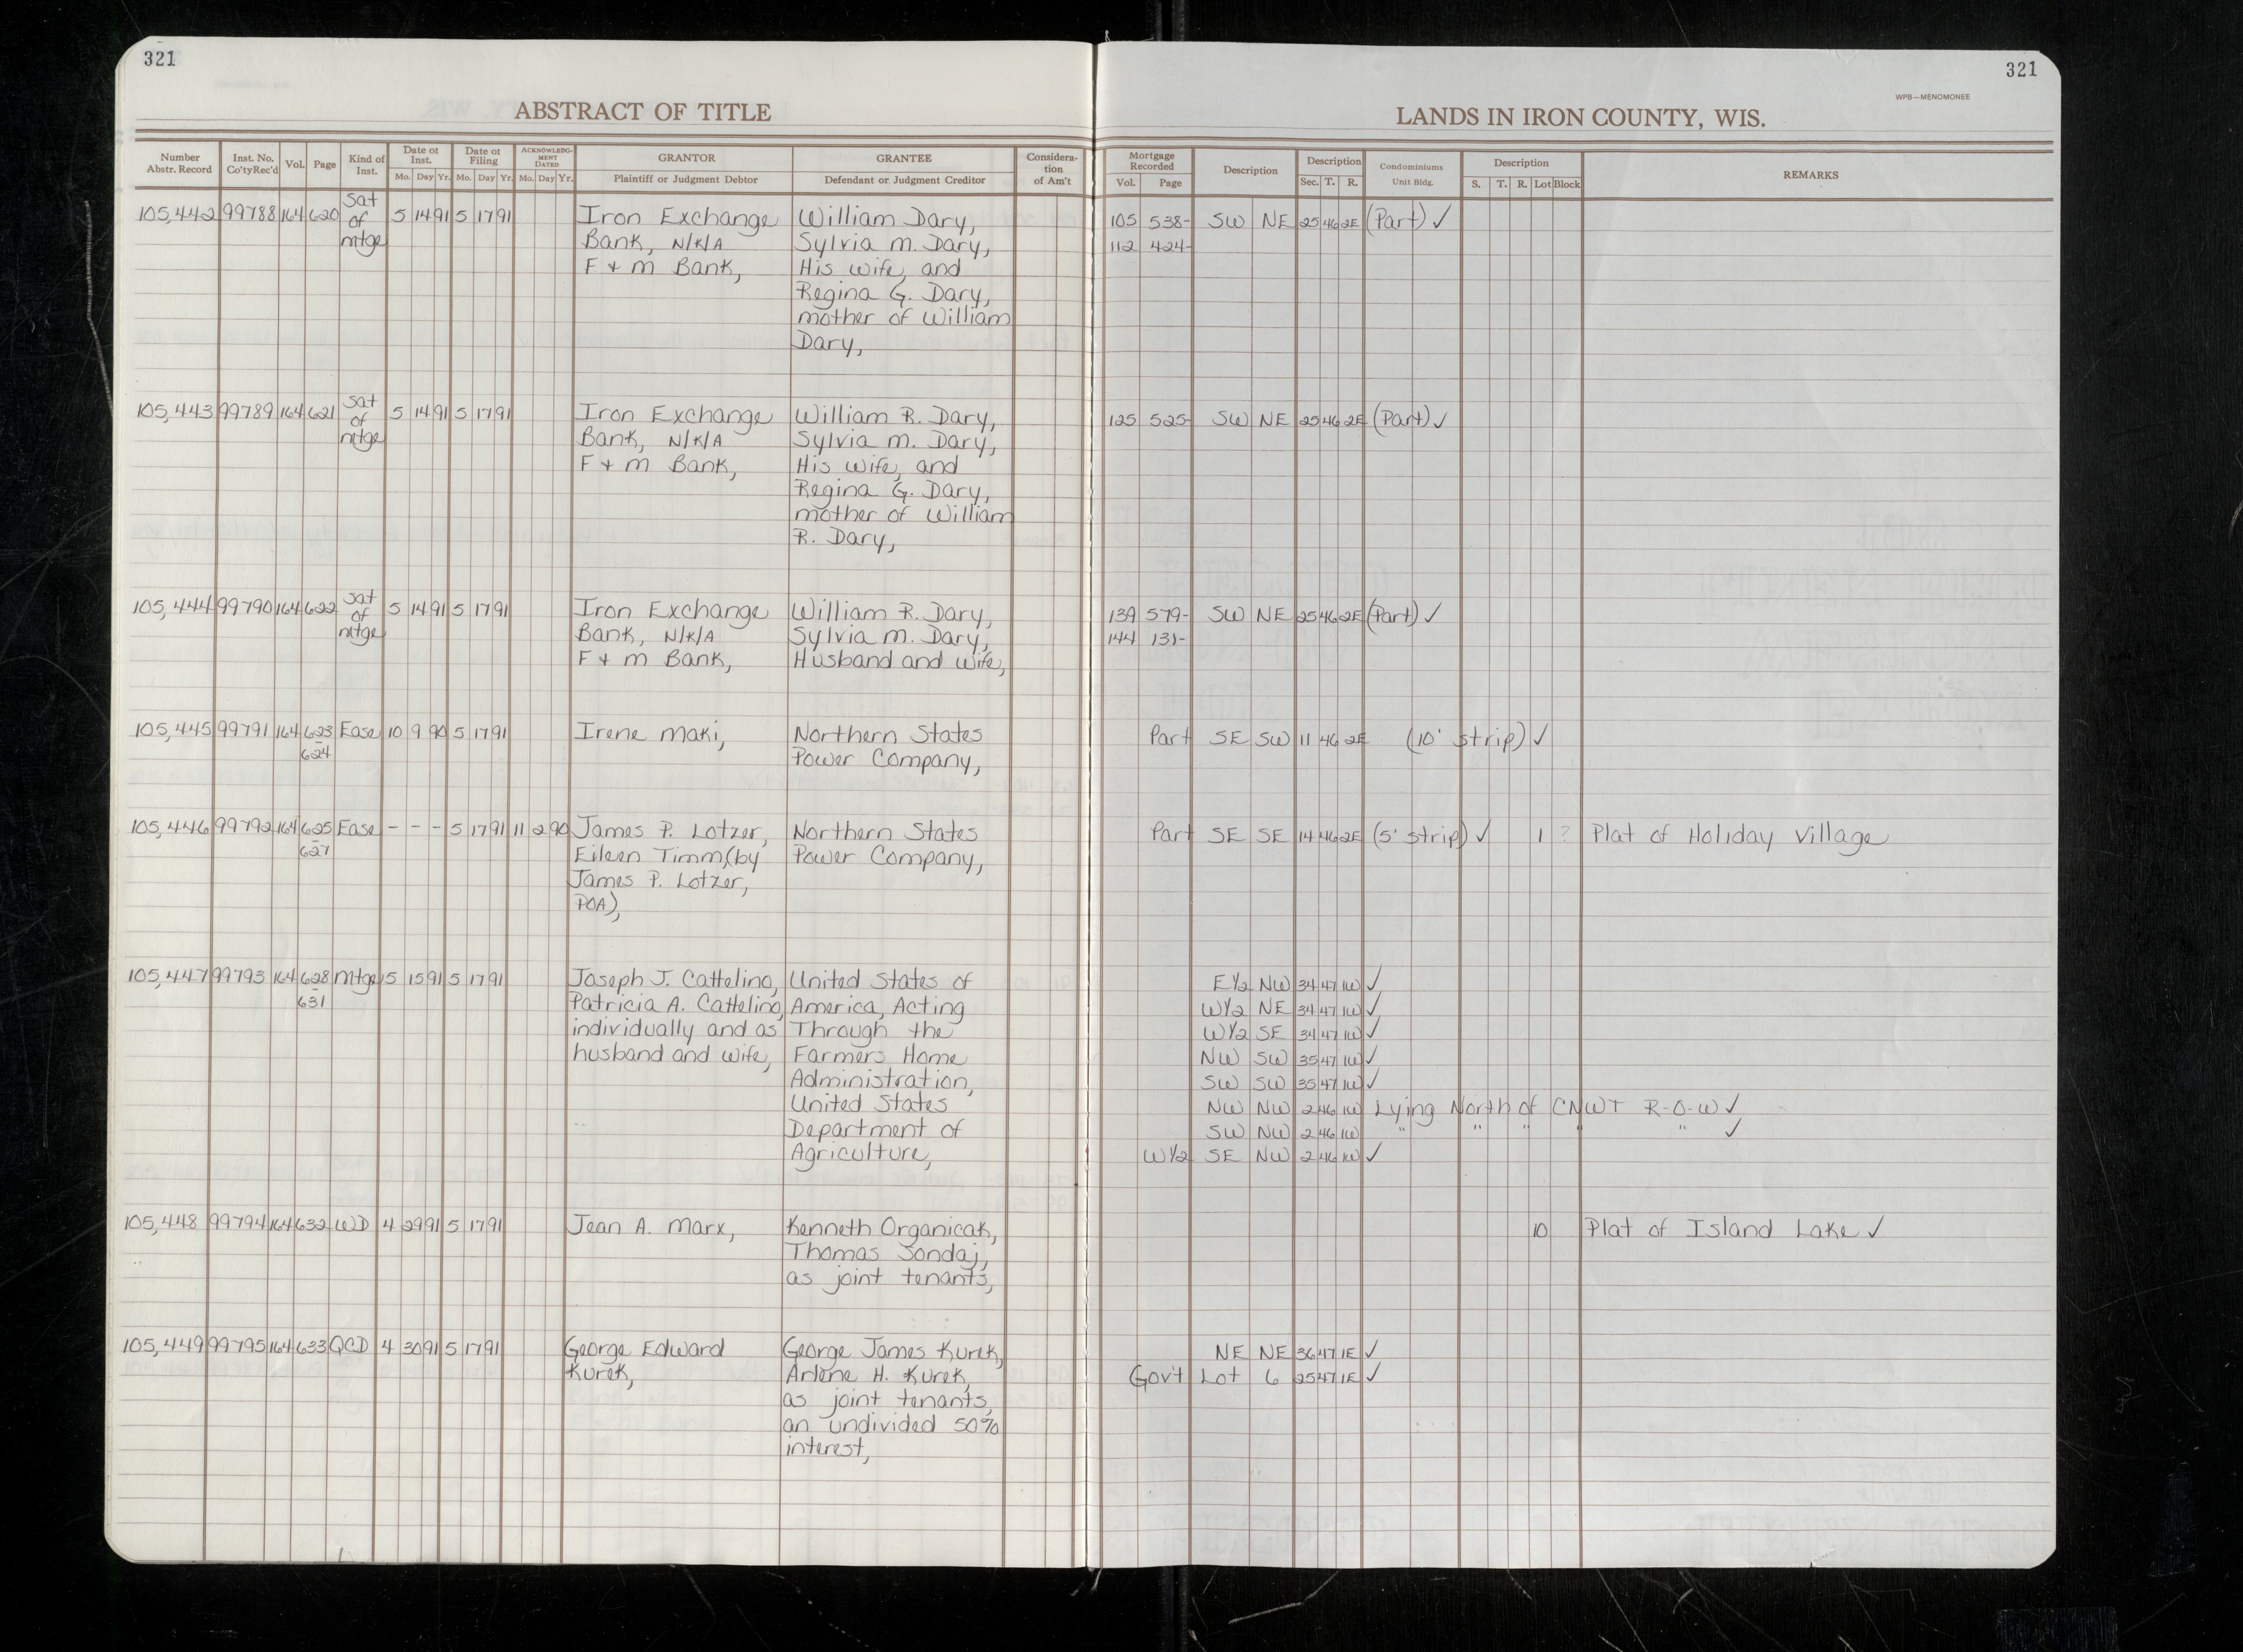 321
321
WPB—MENOMONEE
ABSTRACT OF TITLE
LANDS IN IRON COUNTY, WIS.
Number Abstr. Record Inst. No. Co'tyRec'd Vol. Page Kind of Inst. Date of Inst. Mo. Day Yr. Date of Filing Mo. Day Yr. ACKNOWLEDGMENT DATED Mo. Day Yr. GRANTOR Plaintiff or Judgment Debtor GRANTEE Defendant or Judgment Creditor Consideration of Am't Mortgage Recorded Vol. Page Description Description Sec. T. R. Condominiums Unit Bldg. Description S. T. R. Lot Block REMARKS
105,442 99788 164 620 Sat 5 14 91 5 17 91 Iron Exchange William Dary, 105 538- SW NE 25 46 2E (Part) ✓
of Bank, N/K/A Sylvia M. Dary, 112 424-
mtge F + M Bank, His wife, and
Regina G. Dary,
mother of William
Dary,
105,443 99789 164 621 Sat 5 14 91 5 17 91 Iron Exchange William R. Dary, 125 525- SW NE 25 46 2E (Part) ✓
of Bank, N/K/A Sylvia M. Dary,
mtge F + M Bank, His wife, and
Regina G. Dary,
mother of William
R. Dary,
105,444 99790 164 622 Sat 5 14 91 5 17 91 Iron Exchange William R. Dary, 139 579- SW NE 25 46 2E (Part) ✓
of Bank, N/K/A Sylvia M. Dary, 144 131-
mtge F + M Bank, Husband and wife,
105,445 99791 164 623 Ease 10 9 90 5 17 91 Irene Maki, Northern States Part SE SW 11 46 2E (10' strip) ✓
-624 Power Company,
105,446 99792 164 625 Ease - - - 5 17 91 11 2 90 James P. Lotzer, Northern States Part SE SE 14 46 2E (5' strip) ✓ 1 ? Plat of Holiday Village
-627 Eileen Timm, (by Power Company,
James P. Lotzer,
POA),
105,447 99793 164 628 Mtge 5 15 91 5 17 91 Joseph J. Cattelino, United States of E½ NW 34 47 1W ✓
-631 Patricia A. Cattelino, America, Acting W½ NE 34 47 1W ✓
individually and as Through the W½ SE 34 47 1W ✓
husband and wife, Farmers Home NW SW 35 47 1W ✓
Administration, SW SW 35 47 1W ✓
United States NW NW 2 46 1W Lying North of CNWT R-O-W ✓
Department of SW NW 2 46 1W " " " " " ✓
Agriculture, W½ SE NW 2 46 1W ✓
105,448 99794 164 632 WD 4 29 91 5 17 91 Jean A. Marx, Kenneth Organicak, 10 Plat of Island Lake ✓
Thomas Sondaj,
as joint tenants,
105,449 99795 164 633 QCD 4 30 91 5 17 91 George Edward George James Kurek, NE NE 36 47 1E ✓
Kurek, Arlene H. Kurek, Gov't Lot 6 25 47 1E ✓
as joint tenants,
an undivided 50%
interest,